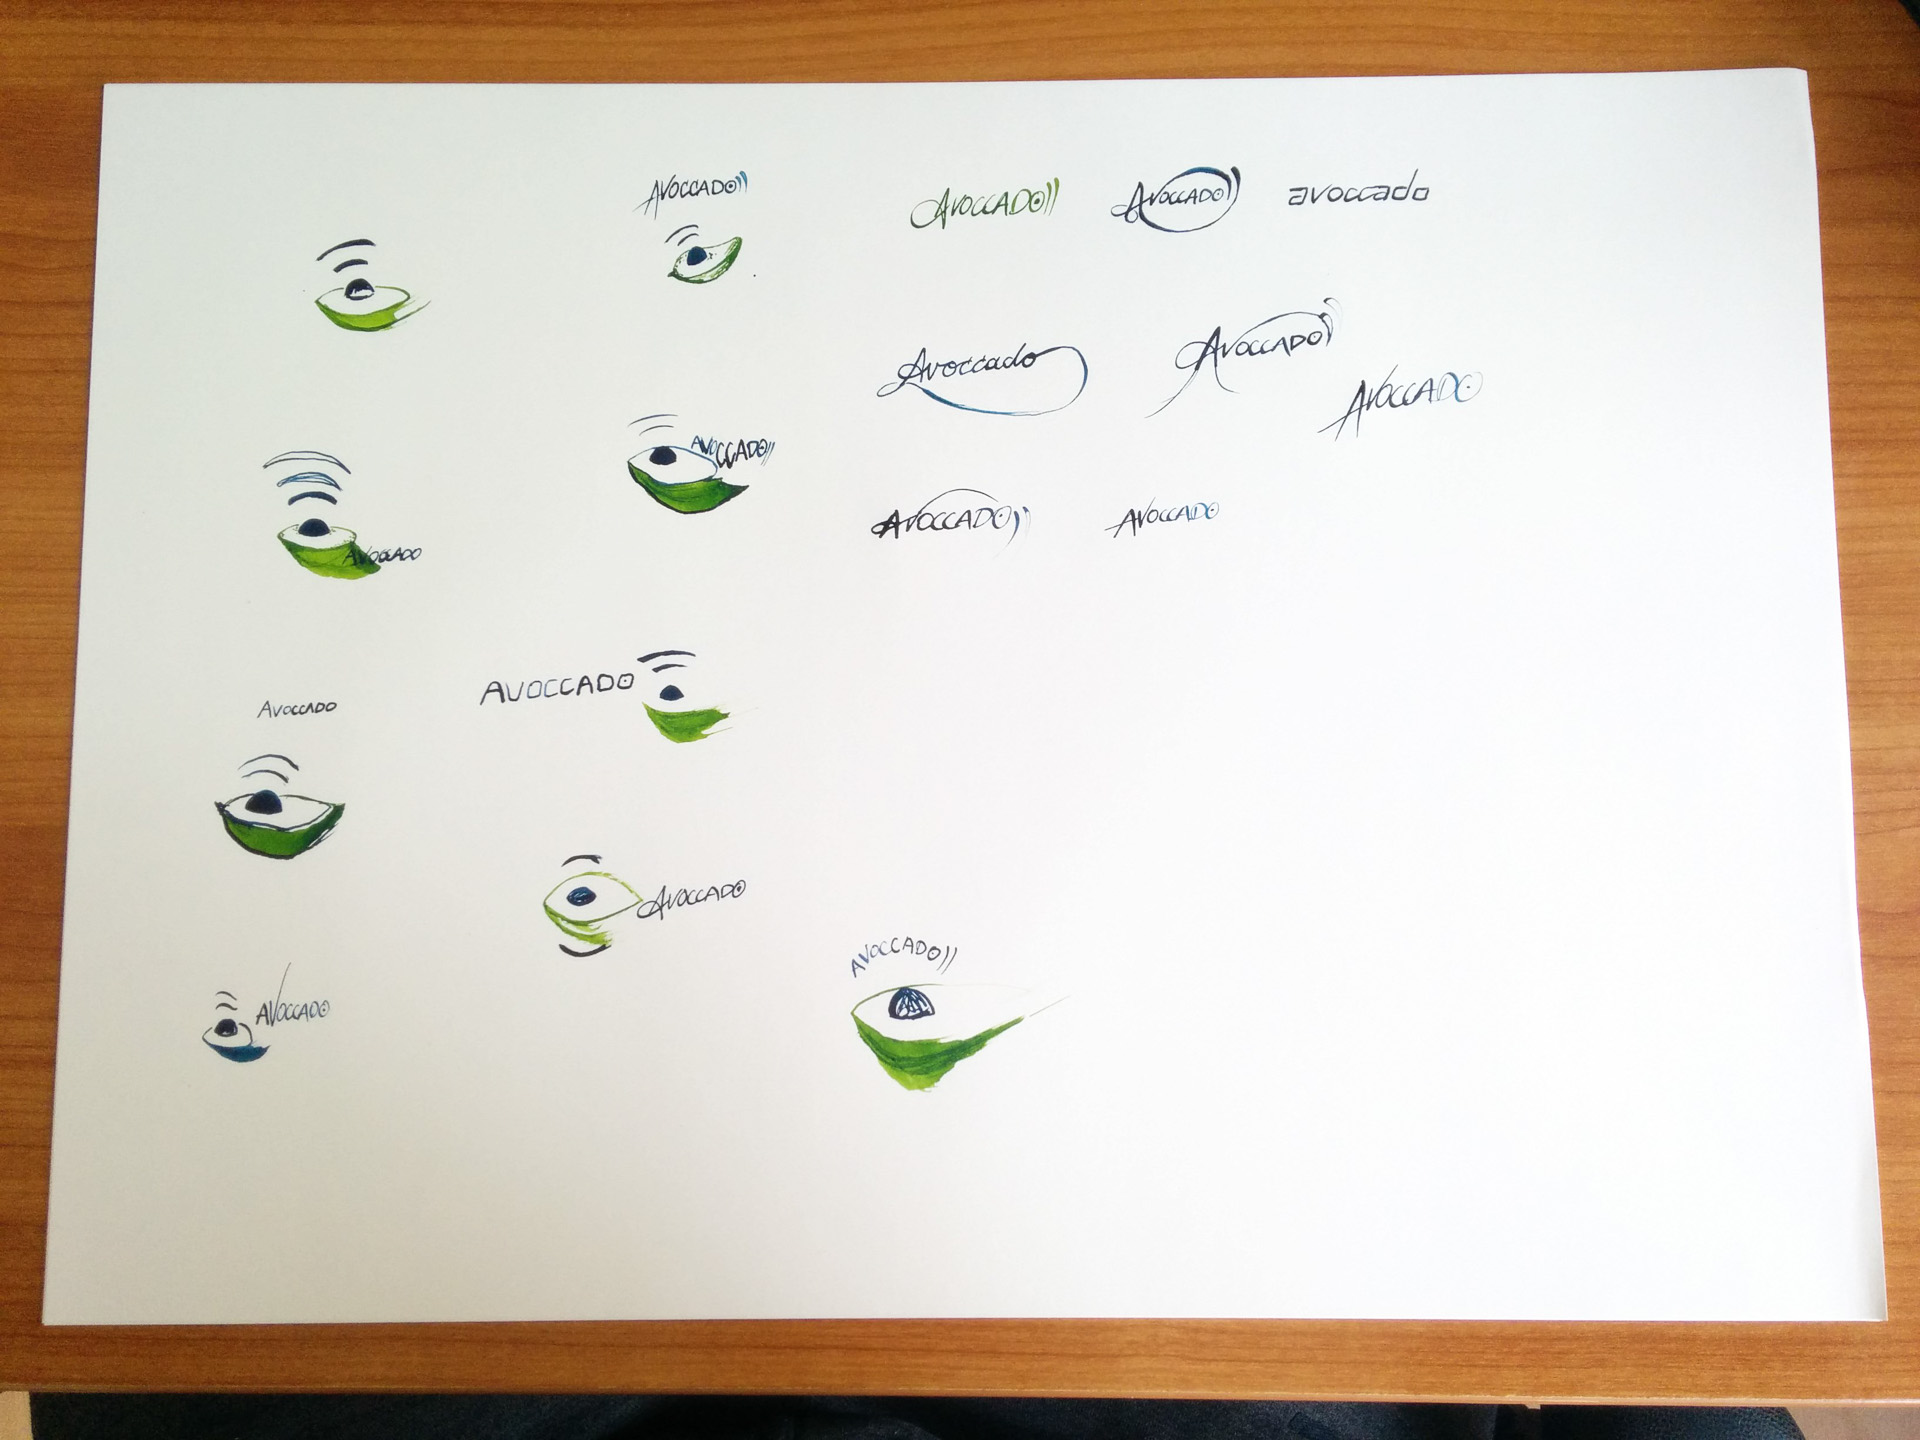 AVOCCADO
AVOCCADO
AVOCCADO
avoccado
Avoccado
AVOCCADO
AVOCCADO
AVOCCADO
AVOCCADO
AVOCCADO
AVOCCADO
AVOCCADO
AVOCCADO
AVOCCADO
AVOCCADO
AVOCCADO